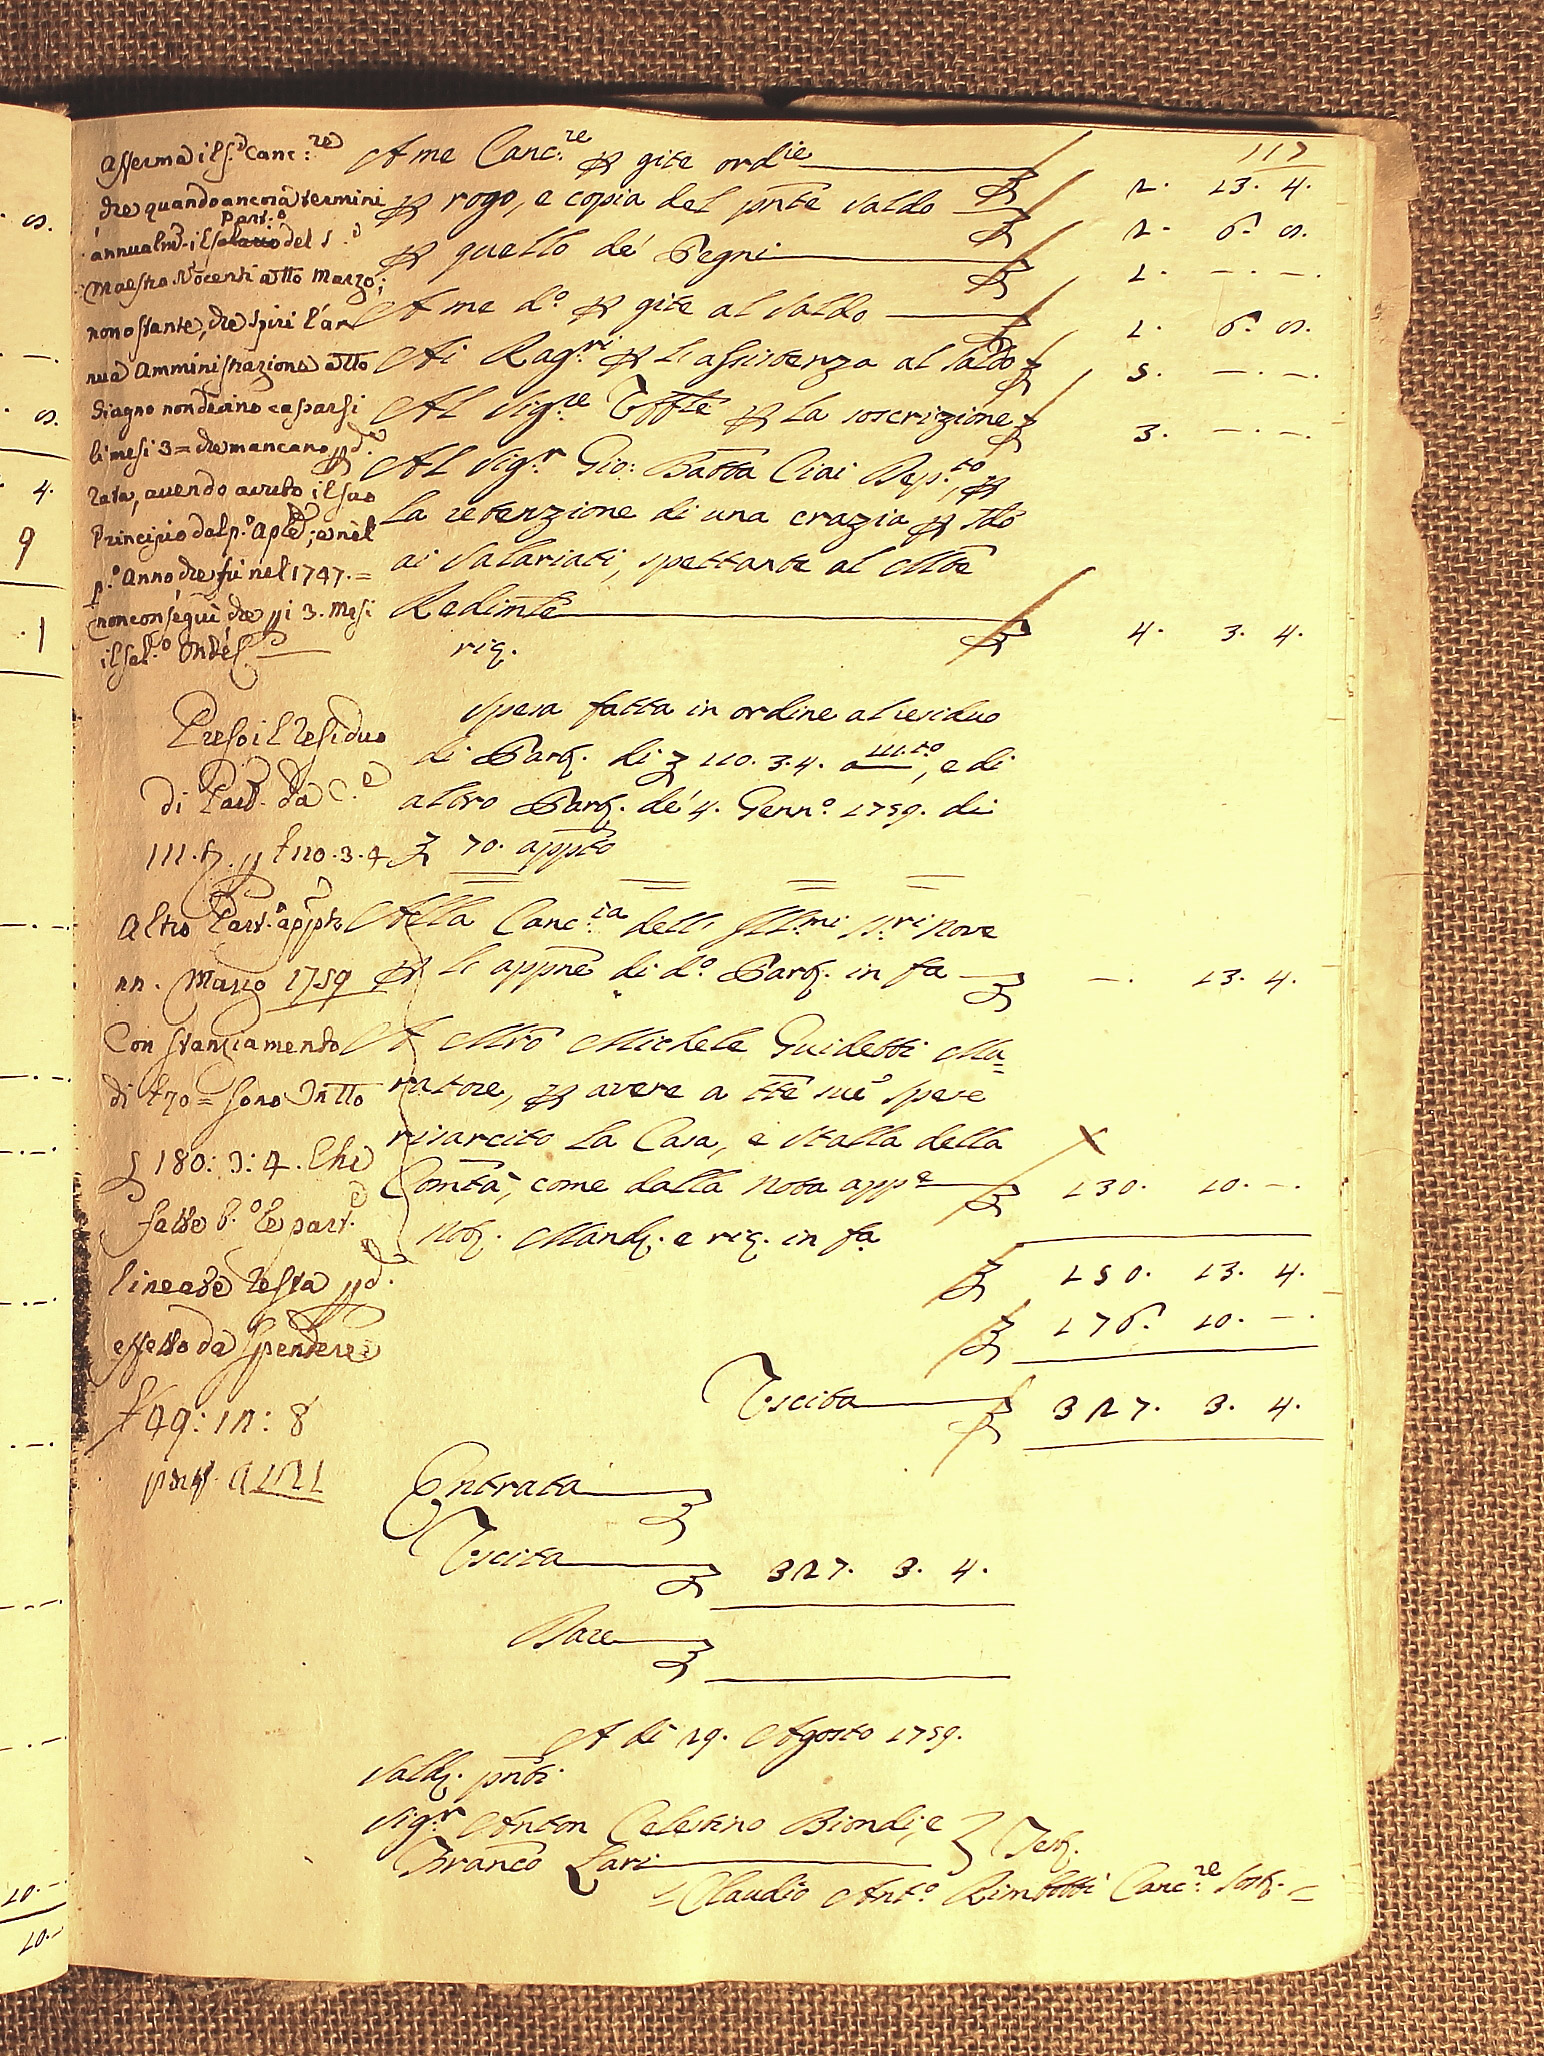 117
A me Canc.re p gite ord.ie £ 2. 13. 4.
p rogo, e copia del pnte saldo £ 2. 6. 8.
p quello de' Pegni £ 1. —. —.
A me d.o p gite al saldo £ 1. 6. 8.
Ai Rag.ri p l'assistenza al saldo £ 5. —. —.
Al Sig.re p la soscrizione £ 3. —. —.
Al Sig.r Gio: Batta Ciai Dep.to, p
la retenzione di una crazia p
ai salariati, spettante al
£ 4. 3. 4.
riq.
Spesa fatta in ordine al residuo
di Part. di £ 110. 3. 4. a 111.to, e di
altro Part. de' 4. Genn.o 1759. di
£ 70. appto
Alla Canc.ia delli Ill.mi SS.ri Nove
p l'appne di d.o Part. in fa £ —. 13. 4.
A Mro Michele Guidetti Mu=
ratore, p avere a tte sue spese
risarcito la Casa, e stalla della
Comtà, come dalla nota app.e £ 130. 10. —.
not. Mand. e riq. in fa
£ 150. 13. 4.
£ 176. 10. —.
Uscita £ 327. 3. 4.
Entrata £
Uscita £ 327. 3. 4.
Dare £
A dì 29. Agosto 1759.
Sald. pnti
Sig.r Anton Celestino Biondi, e
Franco Lari Test.
Claudio Ant.o Rimbotti Canc.re Sost.
Afferma il S.d Canc:re
che quando ancora termini
part.o
annualm.
Maestro Nocenti a tto Marzo;
nonostante, che spiri l'an
nua Amministrazione a tto
Giugno non devino
li mesi 3 = che mancano p d.a
rata, avendo avuto il suo
Principio dal p.o Aple; e nel
p.o Anno che fù nel 1747. =
non conseguì che p i 3. Mesi
il sal.o
Preso il residuo
di Part. da
111. p £ 110. 3. 4
Altro Part.o appto
nn. Marzo 1759
Con stanziamento
di £ 70 = sono In tto
£ 180: 3: 4. Che
fatte le part.e
lineate resta p d.
effetto da spendere
£ 49: 12: 8
8.
—.
8.
4.
9
.1
10. —
10. —